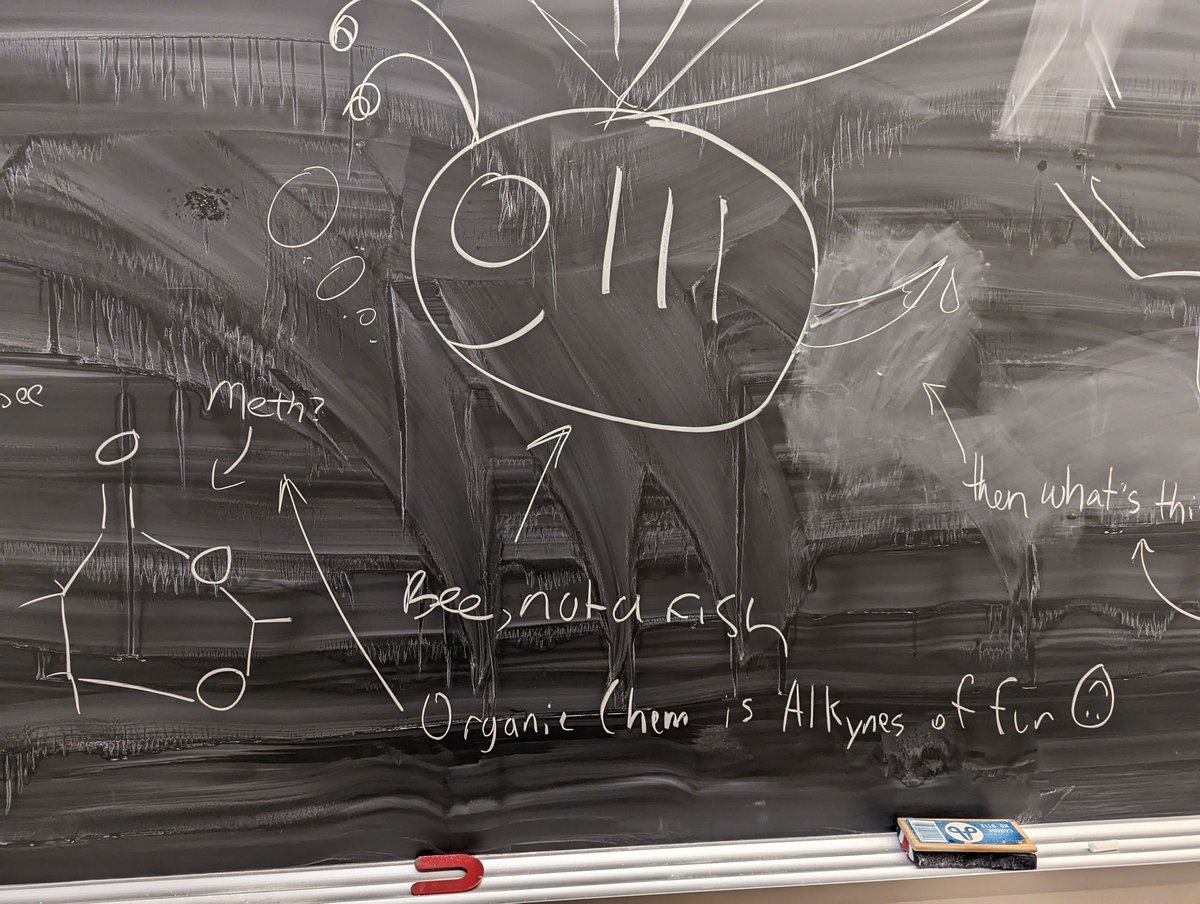 Meth?
O
O
O
then what's thi
Bee, not a fish
Organic Chem is Alkynes of fun
CANADA